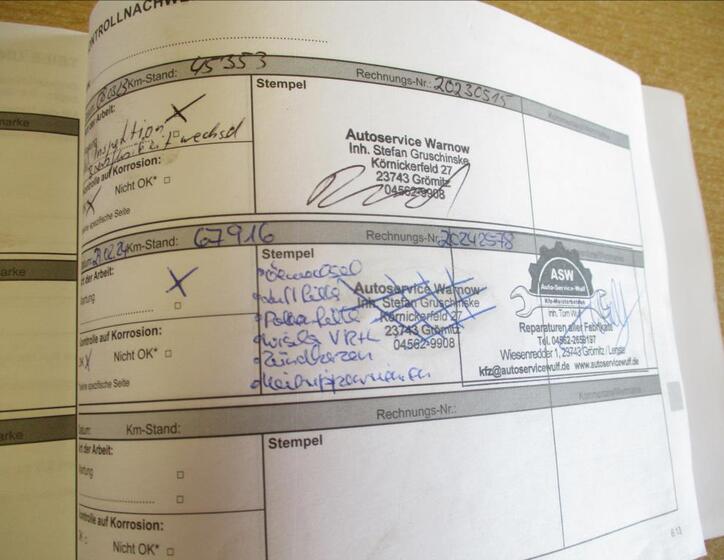 Km-Stand: 45353
Rechnungs-Nr.: 20230515
Stempel
Inspektion
Kontrolle auf Korrosion:
Nicht OK*
siehe spezifische Seite
Autoservice Warnow
Inh. Stefan Gruschinske
Körnickerfeld 27
23743 Grömitz
04562-9908
Km-Stand: 67916
Rechnungs-Nr. 20242578
Art der Arbeit:
Wartung
Kontrolle auf Korrosion:
OK
Nicht OK*
siehe spezifische Seite
Stempel
Ölwechsel
Luftfilter
Pollenfilter
Zündkerzen
Keilrippenriemen
Autoservice Warnow
Inh. Stefan Gruschinske
Körnickerfeld 27
23743 Grömitz
04562-9908
ASW
Auto-Service-Wulf
Kfz-Meisterbetrieb
Inh. Tom
Reparaturen aller Fabrikate
Tel. 04562-2659197
Wiesenredder 1, 23743 Grömitz / Lenste
kfz@autoservicewulf.de www.autoservicewulf.de
Datum:
Km-Stand:
Rechnungs-Nr.:
Art der Arbeit:
Wartung
Stempel
Kontrolle auf Korrosion:
OK
Nicht OK*